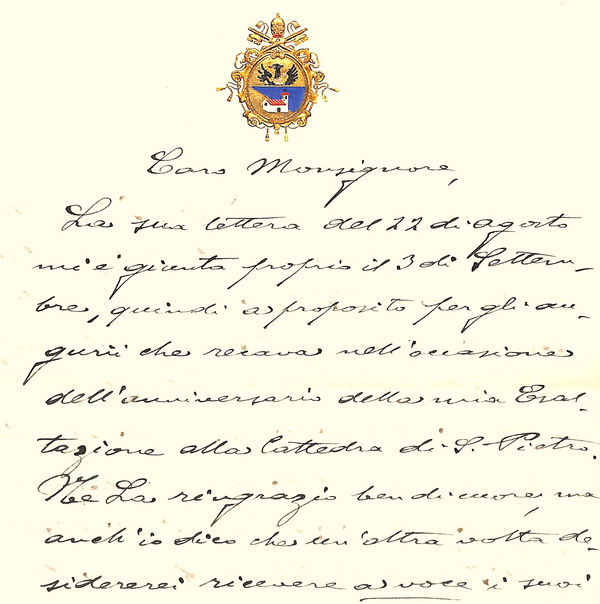 Caro Monsignore,
La sua lettera del 22 di agosto
mi è giunta proprio il 3 di Settem-
bre, quindi a proposito per gli au-
gurii che recava nell'occasione
dell'anniversario della mia Esal-
tazione alla Cattedra di S. Pietro.
Ne La ringrazio ben di cuore, ma
anch'io dico che un'altra volta de-
sidererei ricevere a voce i suoi